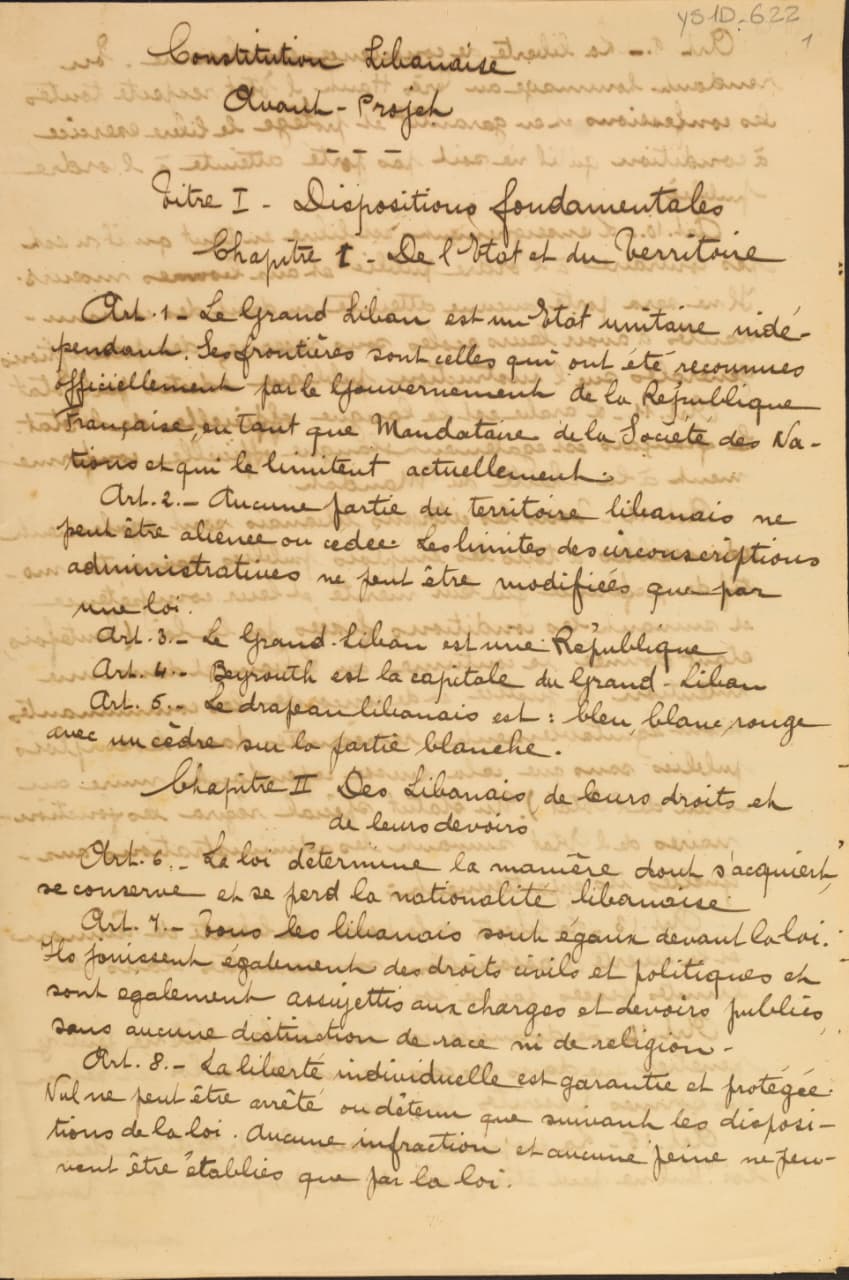 YS1D-622
1
Constitution Libanaise
Avant-Projet
Titre I - Dispositions fondamentales
Chapitre I - De l'Etat et du Territoire
Art. 1 - Le Grand Liban est un Etat unitaire indé-
pendant. Ses frontières sont celles qui ont été reconnues
officiellement par le Gouvernement de la République
Française, en tant que Mandataire de la Société des Na-
tions et qui le limitent actuellement.
Art. 2. - Aucune partie du territoire libanais ne
peut être alienée ou cedée. Les limites des circonscriptions
administratives ne peut être modifiées que par
une loi.
Art. 3. - Le Grand-Liban est une République
Art. 4. - Beyrouth est la capitale du Grand-Liban
Art. 5. - Le drapeau libanais est : bleu, blanc, rouge
avec un cèdre sur la partie blanche.
Chapitre II Des Libanais, de leurs droits et
de leurs devoirs
Art. 6. - La loi détermine la manière dont s'acquiert,
se conserve et se perd la nationalité libanaise
Art. 7. - Tous les libanais sont égaux devant la loi.
Ils jouissent également des droits civils et politiques et
sont egalement assujettis aux charges et devoirs publics,
sans aucune distinction de race ni de religion -
Art. 8. - La liberté individuelle est garantie et protégée.
Nul ne peut être arrêté ou détenu que suivant les disposi-
tions de la loi. Aucune infraction et aucune peine ne peu-
vent être établies que par la loi.